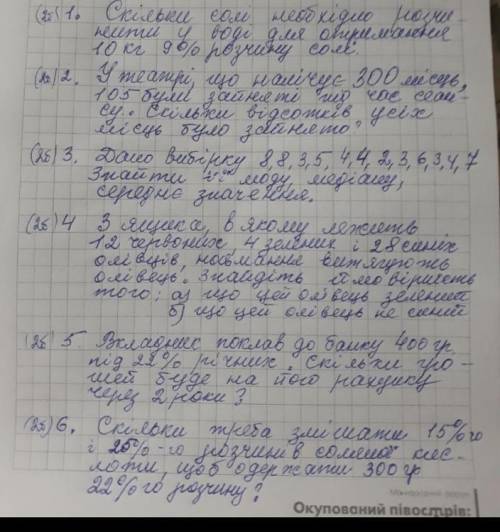 (2б) 1. Скільки солі необхідно розчи-
нити у воді для отримання
10 кг 9% розчину солі.
(2б) 2. У театрі, що налічує 300 місць,
105 були зайняті під час сеан-
су. Скільки відсотків усіх
місць було зайнято?
(2б) 3. Дано вибірку 8,8,3,5,4,4,2,3,6,3,4,7
Знайти її моду, медіану,
середнє значення.
(2б) 4 З ящика, в якому лежить
12 червоних, 4 зелених і 28 синіх
олівців, навмання витягують
олівець. Знайдіть ймовірність
того: а) що цей олівець зелений
б) що цей олівець не синій
(2б) 5. Вкладник поклав до банку 400 гр
під 22% річних. Скільки гро-
шей буде на його рахунку
через 2 роки?
(2б) 6. Скільки треба змішати 15%го
і 25%-го розчинів соляної кис-
лоти, щоб одержати 300 гр
22%го розчину?
Окупований півострів: